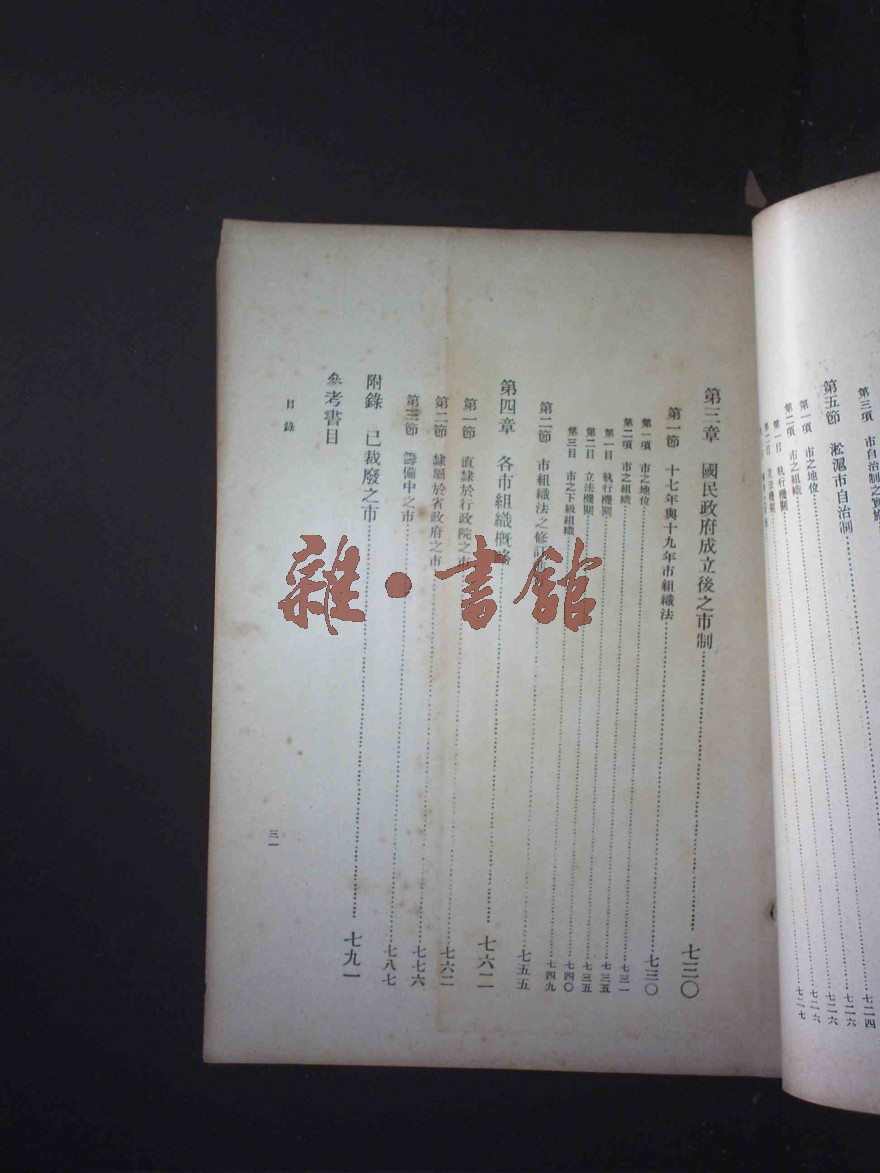 第三項 市自治制之實施
第五節 淞滬市自治制 七二四
第一項 市之地位 七二六
第二項 市之組織 七二六
第一目 執行機關 七二六
第二目 立法機關 七二七
第三章 國民政府成立後之市制 七三〇
第一節 十七年與十九年市組織法 七三〇
第一項 市之地位 七三一
第二項 市之組織 七三五
第一目 執行機關 七三五
第二目 立法機關 七四〇
第三目 市之下級組織 七四九
第二節 市組織法之修訂 七五五
第四章 各市組織概略 七六二
第一節 直隸於行政院之市 七六二
第二節 隸屬於省政府之市 七七六
第三節 籌備中之市 七八七
附錄 已裁廢之市 七九一
參考書目
目錄
三一
雜·書館